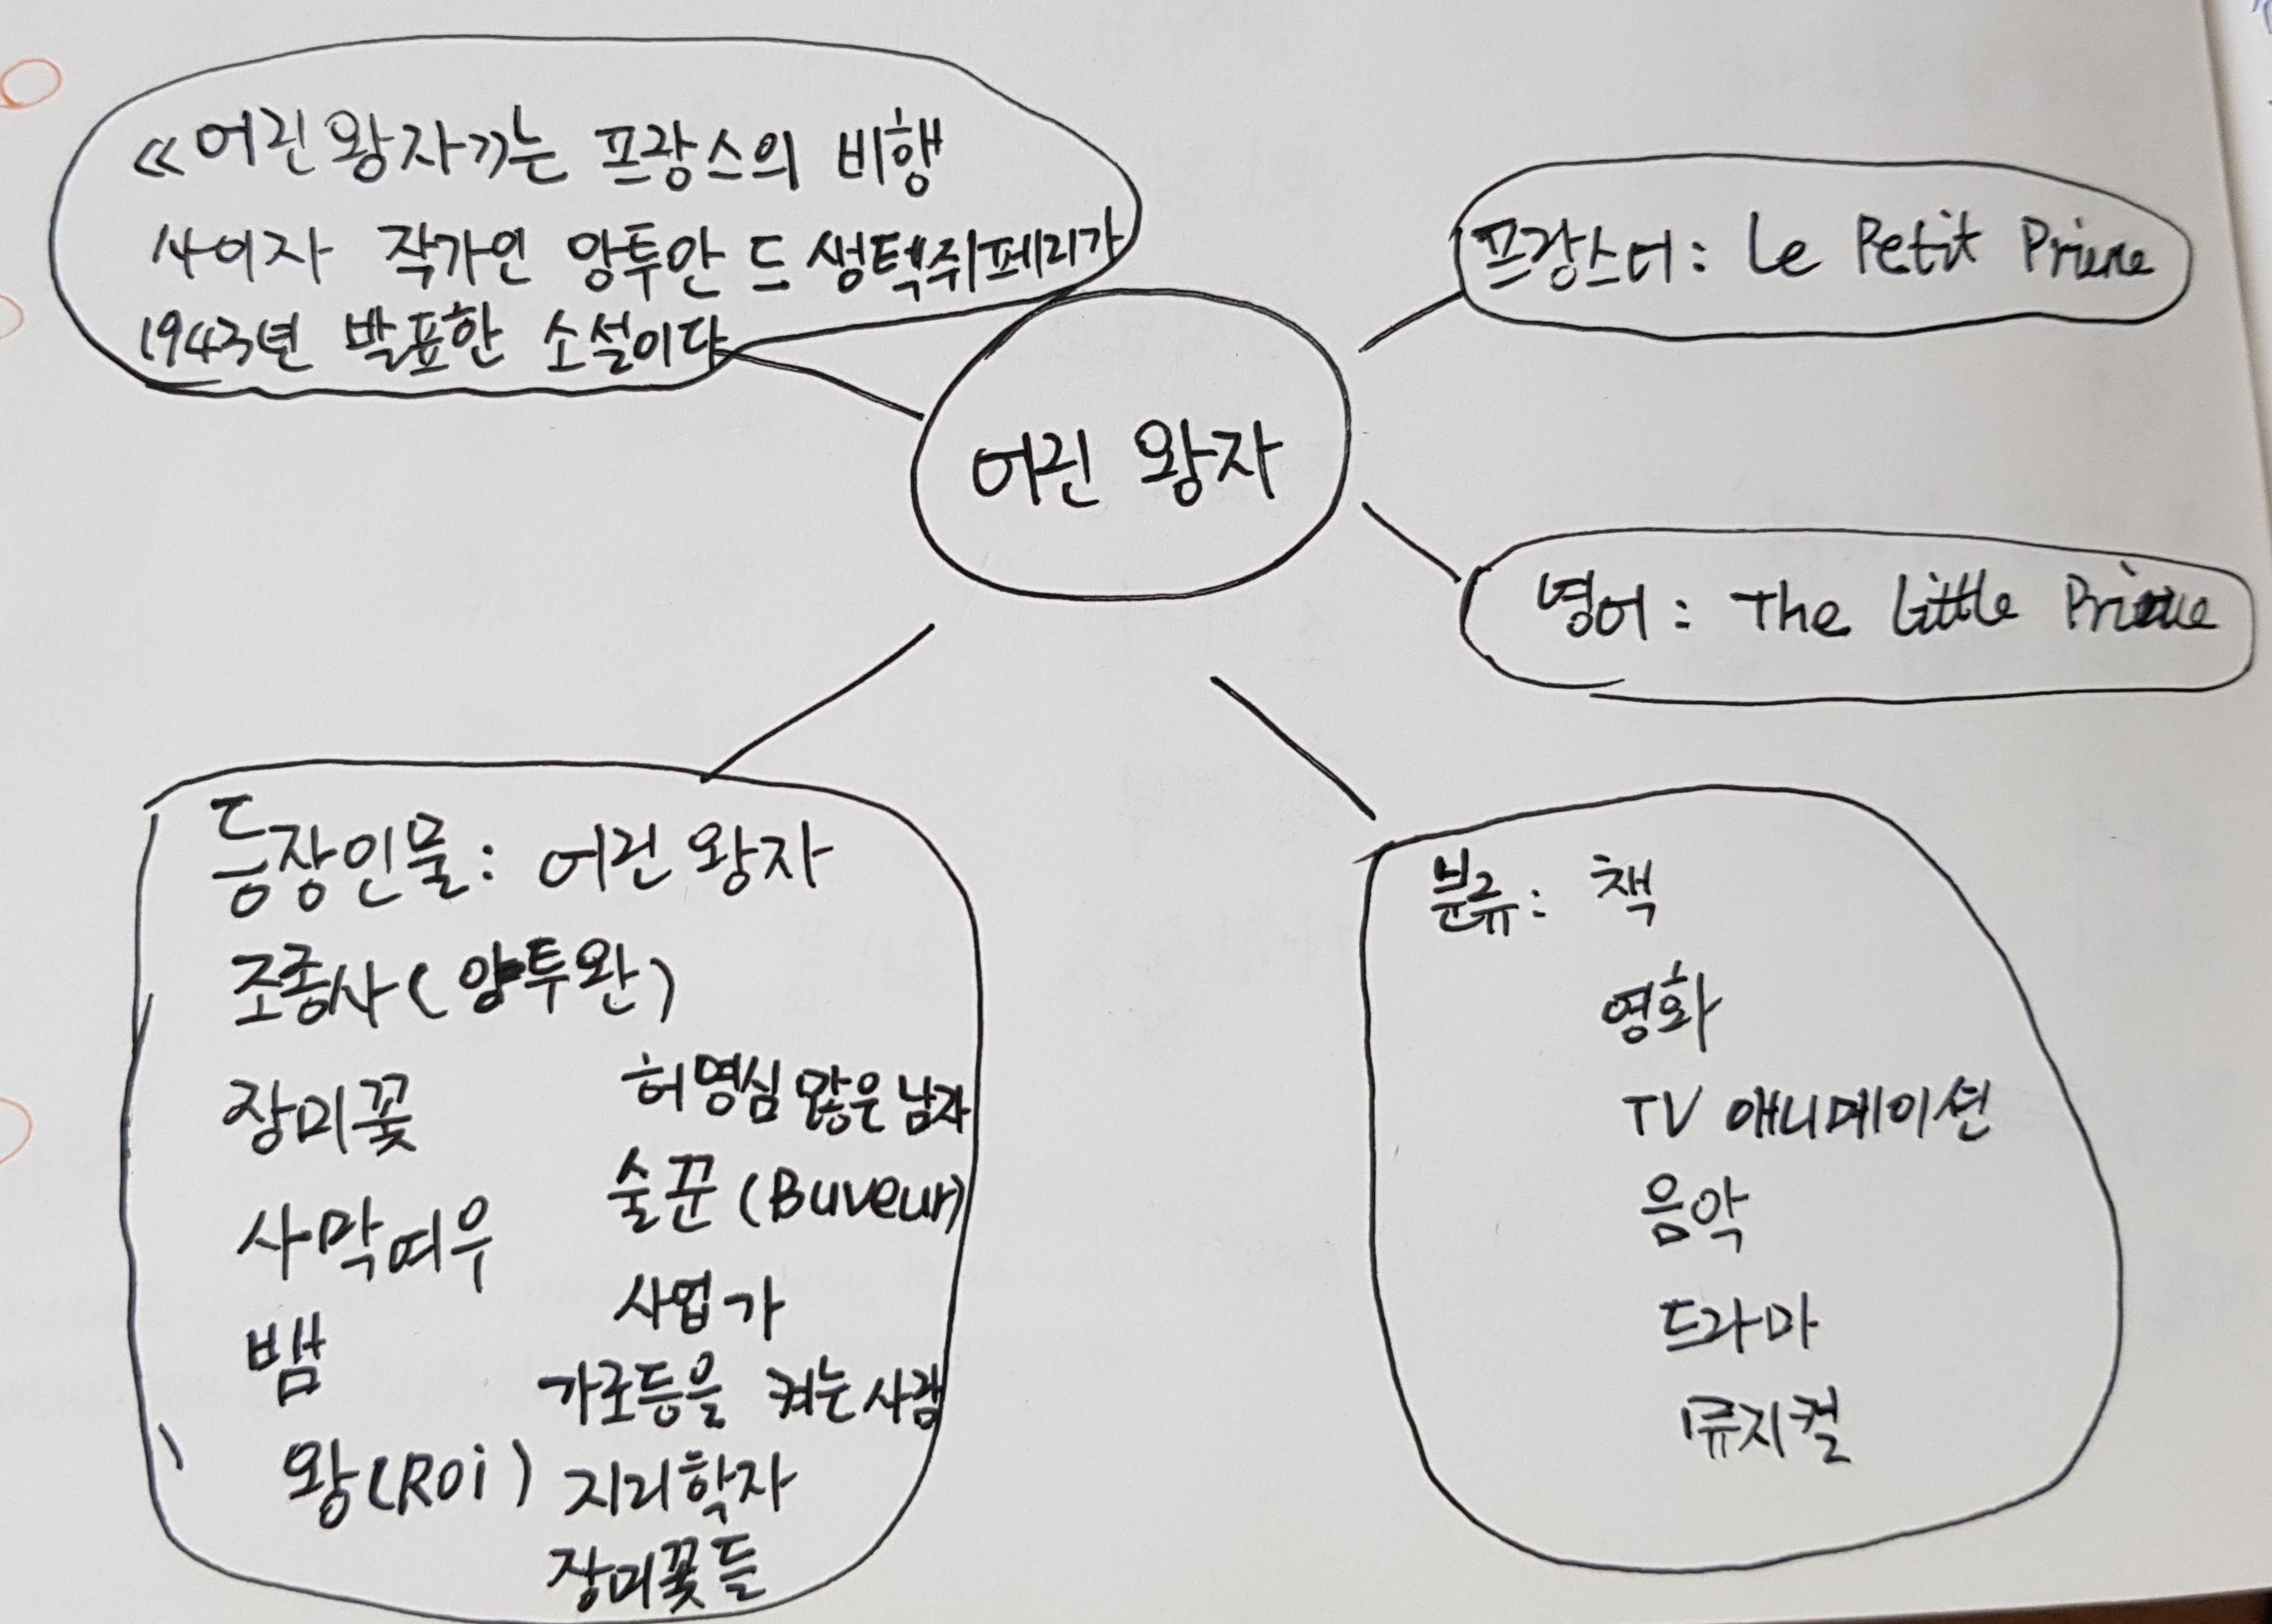 《어린왕자》는 프랑스의 비행
사이자 작가인 앙투안 드 생텍쥐페리가
1943년 발표한 소설이다
프랑스어: Le Petit Prince
어린 왕자
영어: The Little Prince
등장인물: 어린왕자
조종사(앙투완)
장미꽃
사막여우
뱀
왕(Roi)
허영심 많은 남자
술꾼(Buveur)
사업가
가로등을 켜는 사람
지리학자
장미꽃들
분류: 책
영화
TV 애니메이션
음악
드라마
뮤지컬